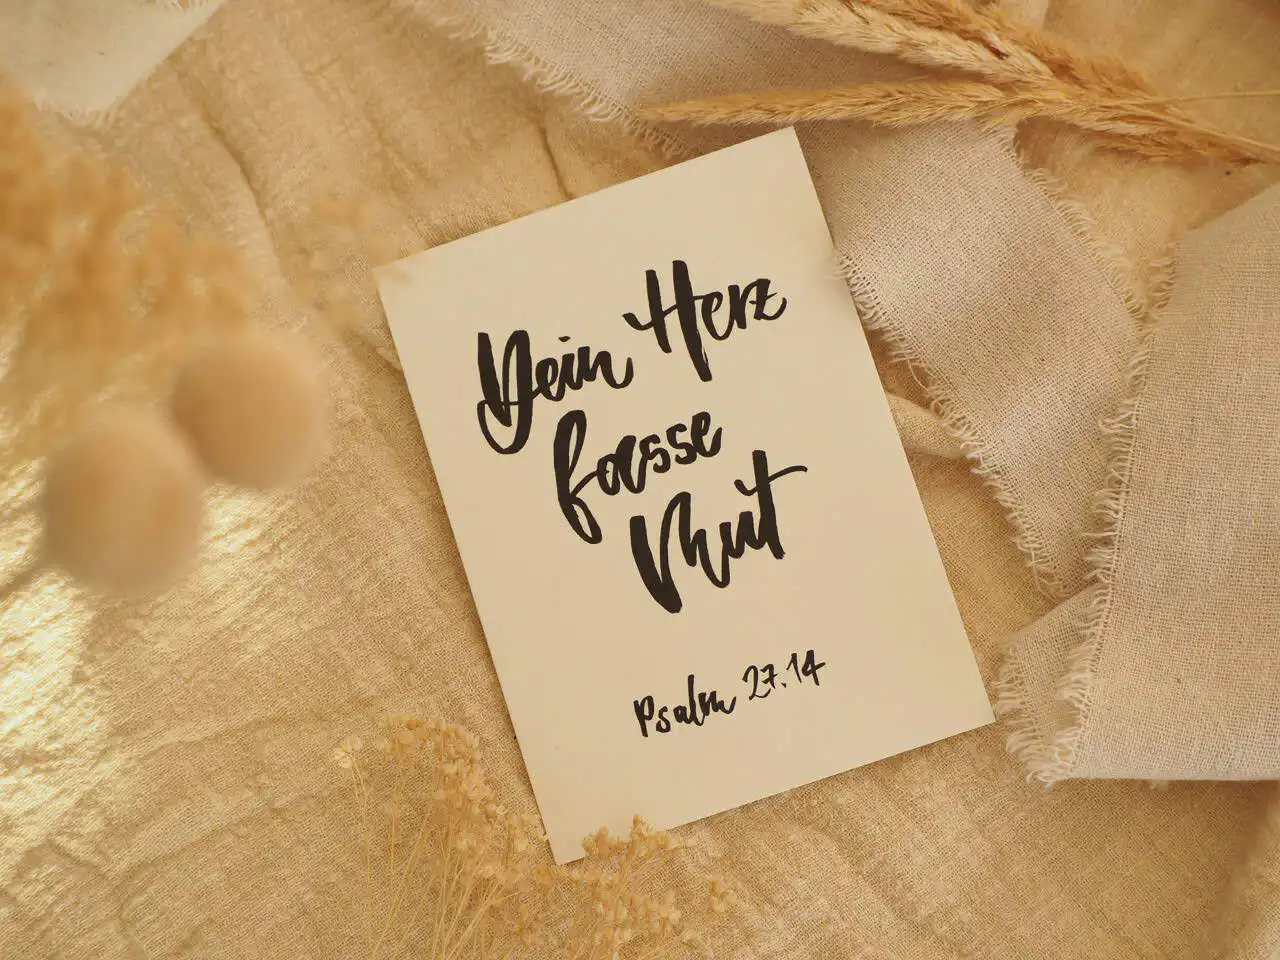 Dein Herz
fasse
Mut
Psalm 27.14